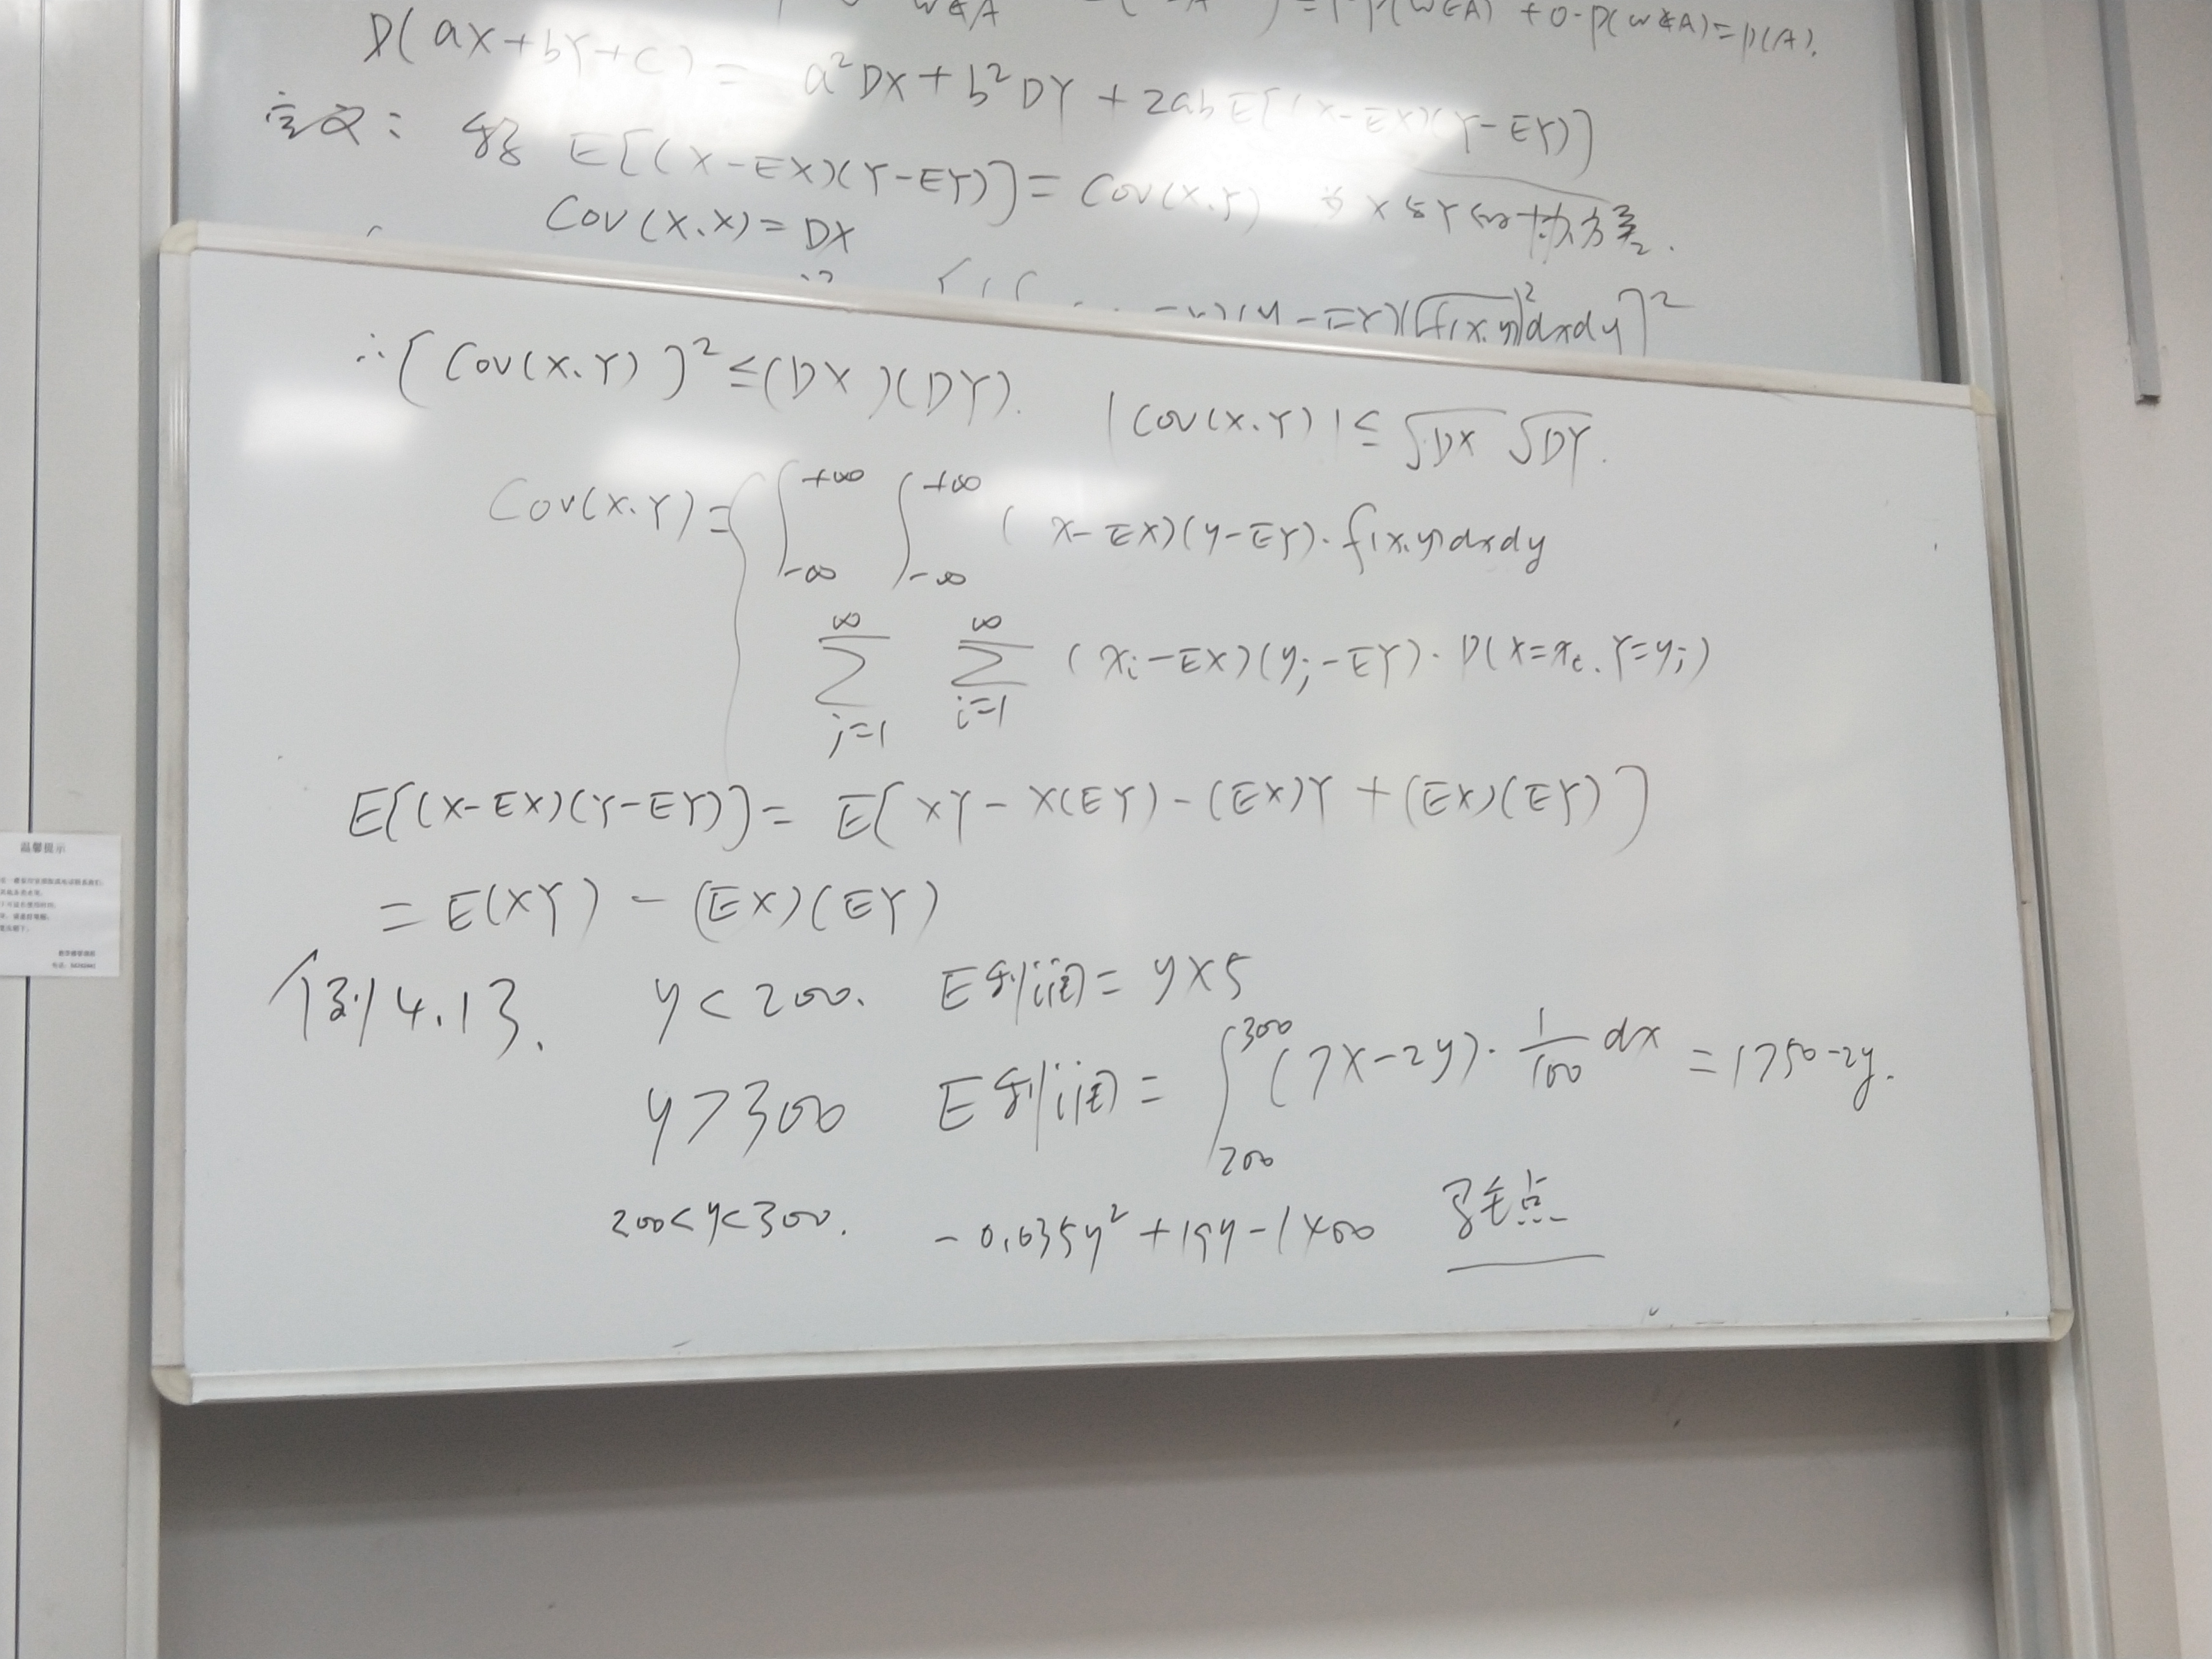 w∉A =1·P(w∈A)+0·P(w∉A)=P(A).
D(aX+bY+c)= a²DX+b²DY+2abE[(X-EX)(Y-EY)]
定义: E[(X-EX)(Y-EY)]=Cov(X.Y) 为X与Y的协方差.
Cov(X.X)=DX
(y-EY)(√f(x.y))²dxdy]²
∴[Cov(X.Y)]²≤(DX)(DY). |Cov(X.Y)|≤√DX √DY.
Cov(X.Y)={ ∫_{-∞}^{+∞} ∫_{-∞}^{+∞} (x-EX)(y-EY)·f(x.y)dxdy
∑_{j=1}^{∞} ∑_{i=1}^{∞} (xi-EX)(yj-EY)·P(X=xi.Y=yj)
E[(X-EX)(Y-EY)]= E[XY-X(EY)-(EX)Y+(EX)(EY)]
=E(XY)-(EX)(EY)
例4.13. y<200. E利润=y×5
y>300 E利润=∫_{200}^{300}(7x-2y)·1/100 dx=1750-2y.
200<y<300. -0.035y²+19y-1400
温馨提示